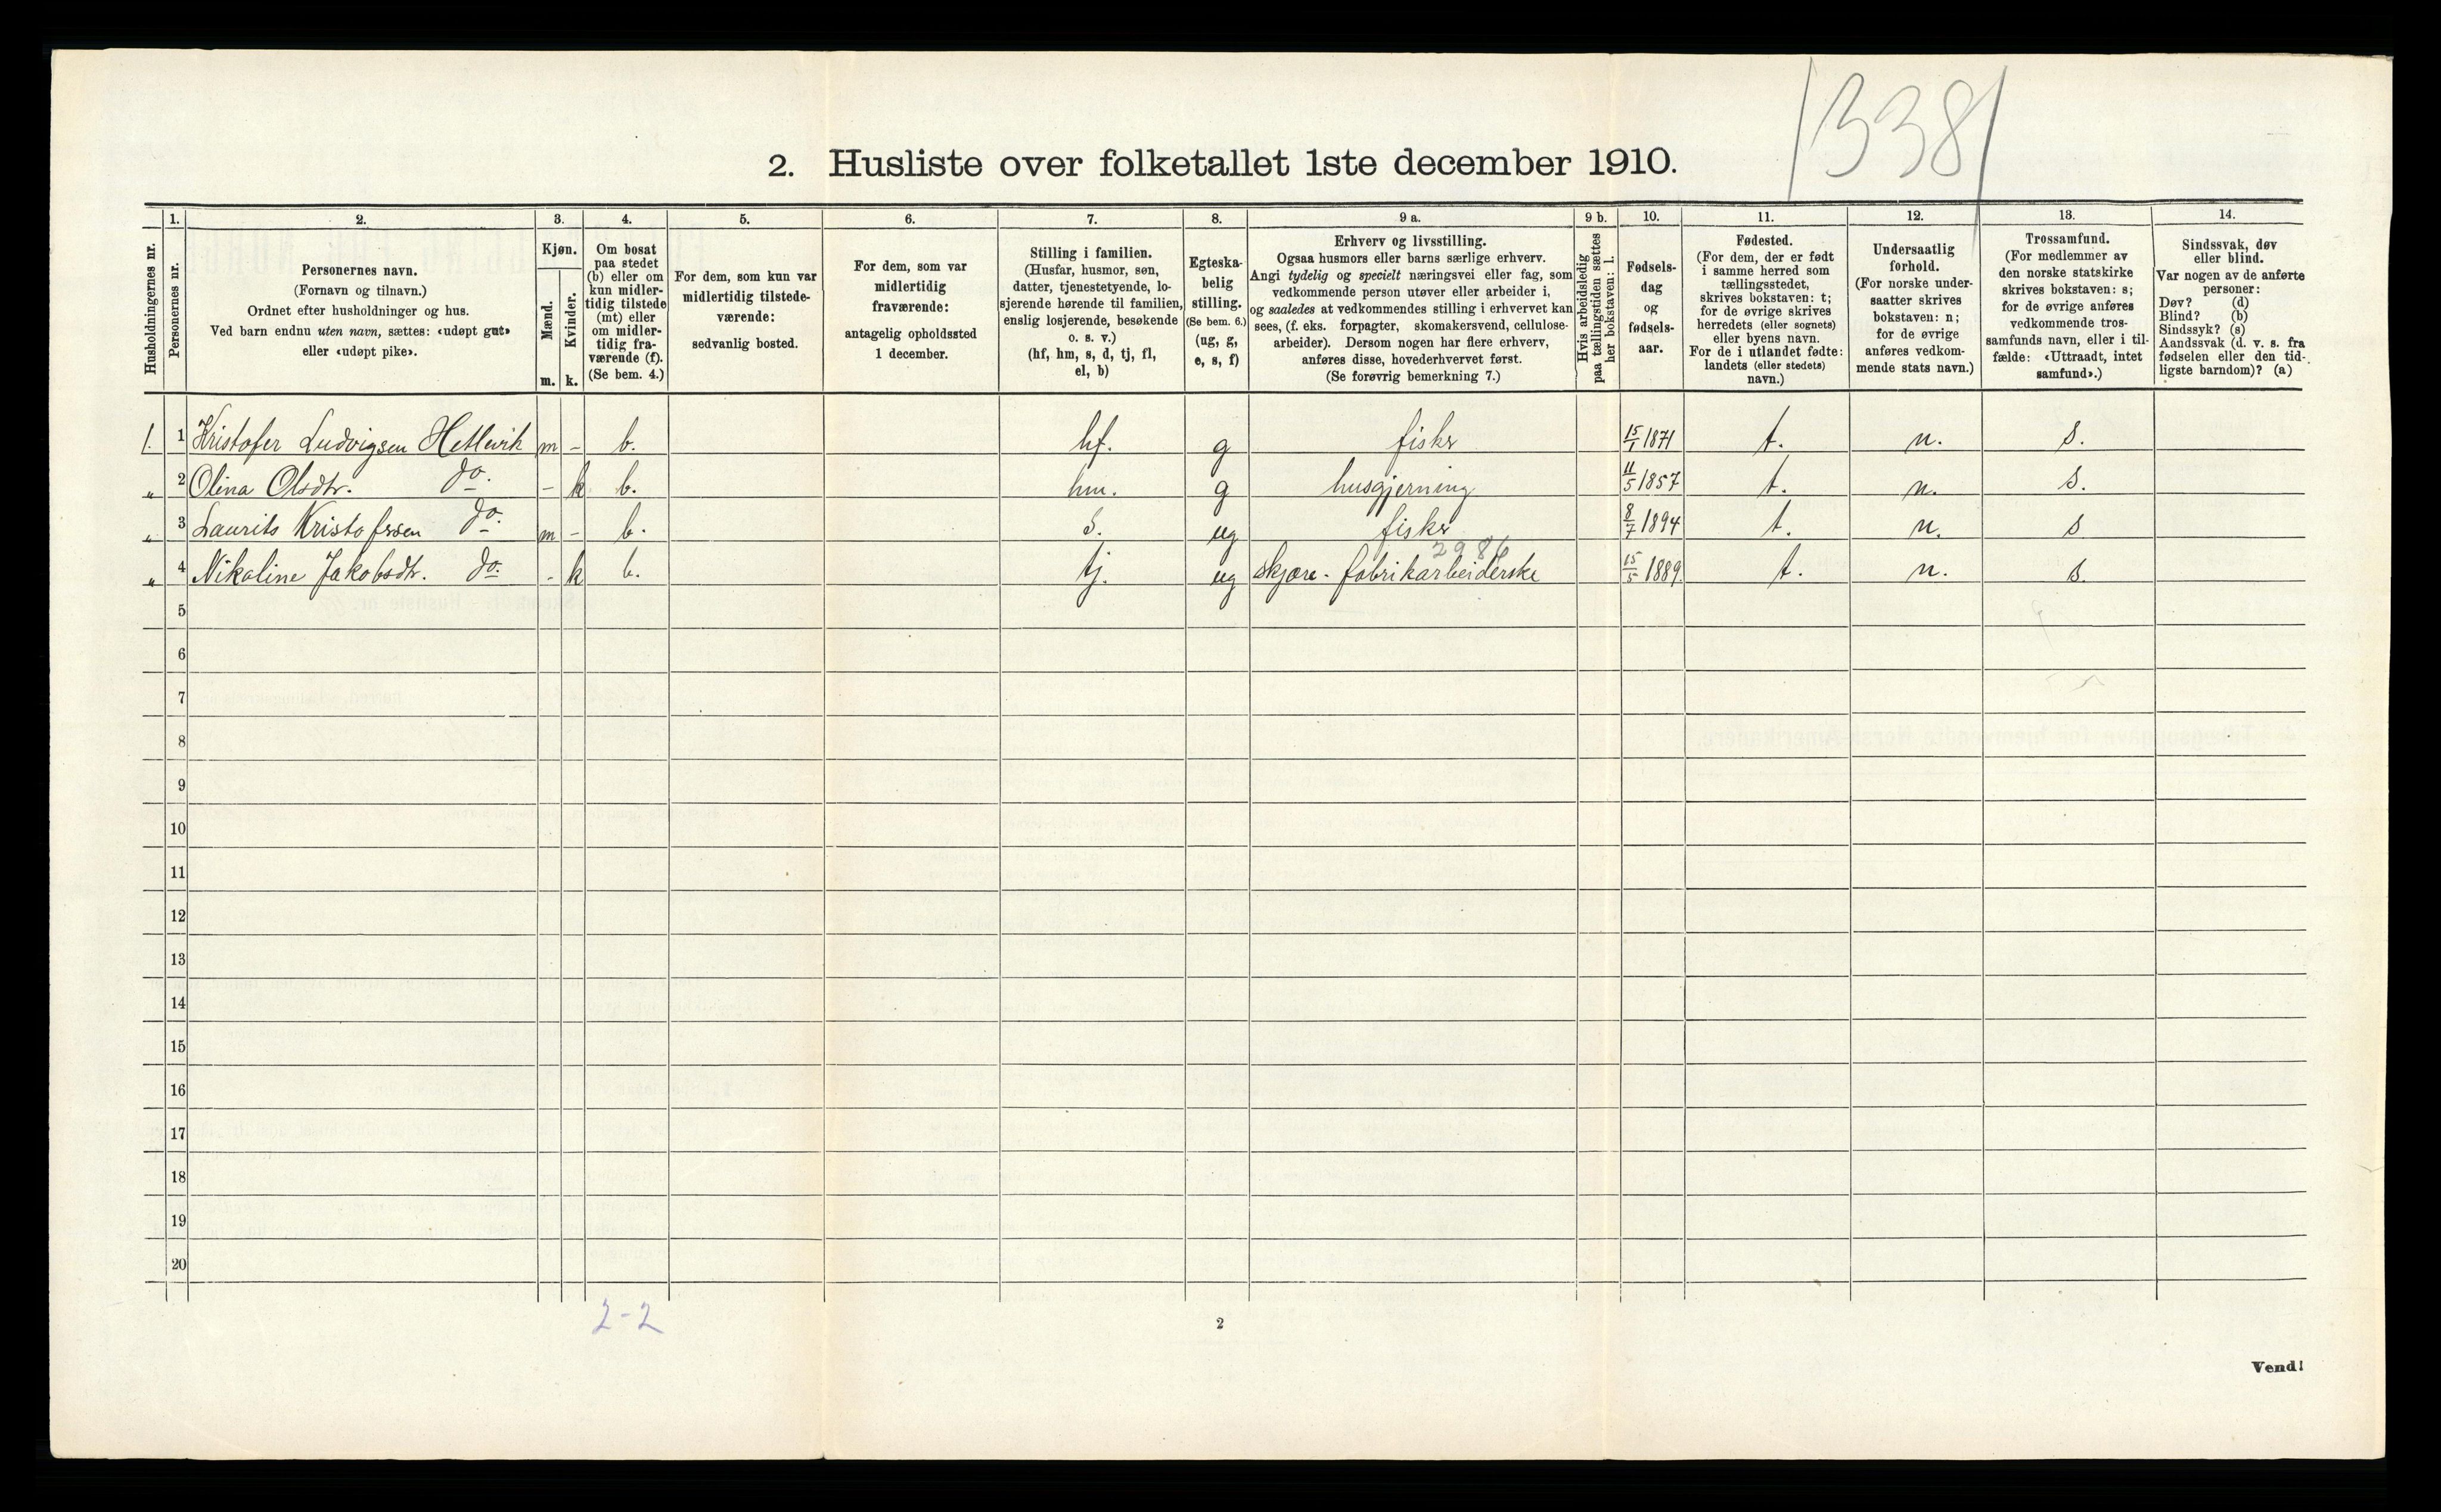 1338
2. Husliste over folketallet 1ste december 1910.
1. 2. 3. 4. 5. 6. 7. 8. 9 a. 9 b. 10. 11. 12. 13. 14.
Husholdningernes nr.
Personernes nr.
Personernes navn.
(Fornavn og tilnavn.)
Ordnet efter husholdninger og hus.
Ved barn endnu uten navn, sættes: «udøpt gut»
eller «udøpt pike».
Kjøn.
Mænd.
m.
Kvinder.
k.
Om bosat
paa stedet
(b) eller om
kun midler-
tidig tilstede
(mt) eller
om midler-
tidig fra-
værende (f).
(Se bem. 4.)
For dem, som kun var
midlertidig tilstede-
værende:
sedvanlig bosted.
For dem, som var
midlertidig
fraværende:
antagelig opholdssted
1 december.
Stilling i familien.
(Husfar, husmor, søn,
datter, tjenestetyende, lo-
sjerende hørende til familien,
enslig losjerende, besøkende
o. s. v.)
(hf, hm, s, d, tj, fl,
el, b)
Egteska-
belig
stilling.
(Se bem. 6.)
(ug, g,
e, s, f)
Erhverv og livsstilling.
Ogsaa husmors eller barns særlige erhverv.
Angi tydelig og specielt næringsvei eller fag, som
vedkommende person utøver eller arbeider i,
og saaledes at vedkommendes stilling i erhvervet kan
sees, (f. eks. forpagter, skomakersvend, cellulose-
arbeider). Dersom nogen har flere erhverv,
anføres disse, hovederhvervet først.
(Se forøvrig bemerkning 7.)
Hvis arbeidsledig
paa tællingstiden sættes
her bokstaven: l.
Fødsels-
dag
og
fødsels-
aar.
Fødested.
(For dem, der er født
i samme herred som
tællingsstedet,
skrives bokstaven: t;
for de øvrige skrives
herredets (eller sognets)
eller byens navn.
For de i utlandet fødte:
landets (eller stedets)
navn.)
Undersaatlig
forhold.
(For norske under-
saatter skrives
bokstaven: n;
for de øvrige
anføres vedkom-
mende stats navn.)
Trossamfund.
(For medlemmer av
den norske statskirke
skrives bokstaven: s;
for de øvrige anføres
vedkommende tros-
samfunds navn, eller i til-
fælde: «Uttraadt, intet
samfund».)
Sindssvak, døv
eller blind.
Var nogen av de anførte
personer:
Døv? (d)
Blind? (b)
Sindssyk? (s)
Aandssvak (d. v. s. fra
fødselen eller den tid-
ligste barndom)? (a)
1. 1 Kristofer Ludvigsen Hetlevik m - b. hf. g fisker 15/1 1871 t. n. s.
" 2 Olina Olsdtr. do. - k b. hm. g husgjerning 11/5 1857 t. n. s.
" 3 Laurits Kristofersen do. m - b. s. ug fisker 8/7 1894 t. n. s
2986
" 4 Nikoline Jakobsdtr. do. - k b. tj. ug skjore- fabrikarbeiderske 15/5 1889. t. n. s.
5
6
7
8
9
10
11
12
13
14
15
16
17
18
19
20
2-2
2
Vend!